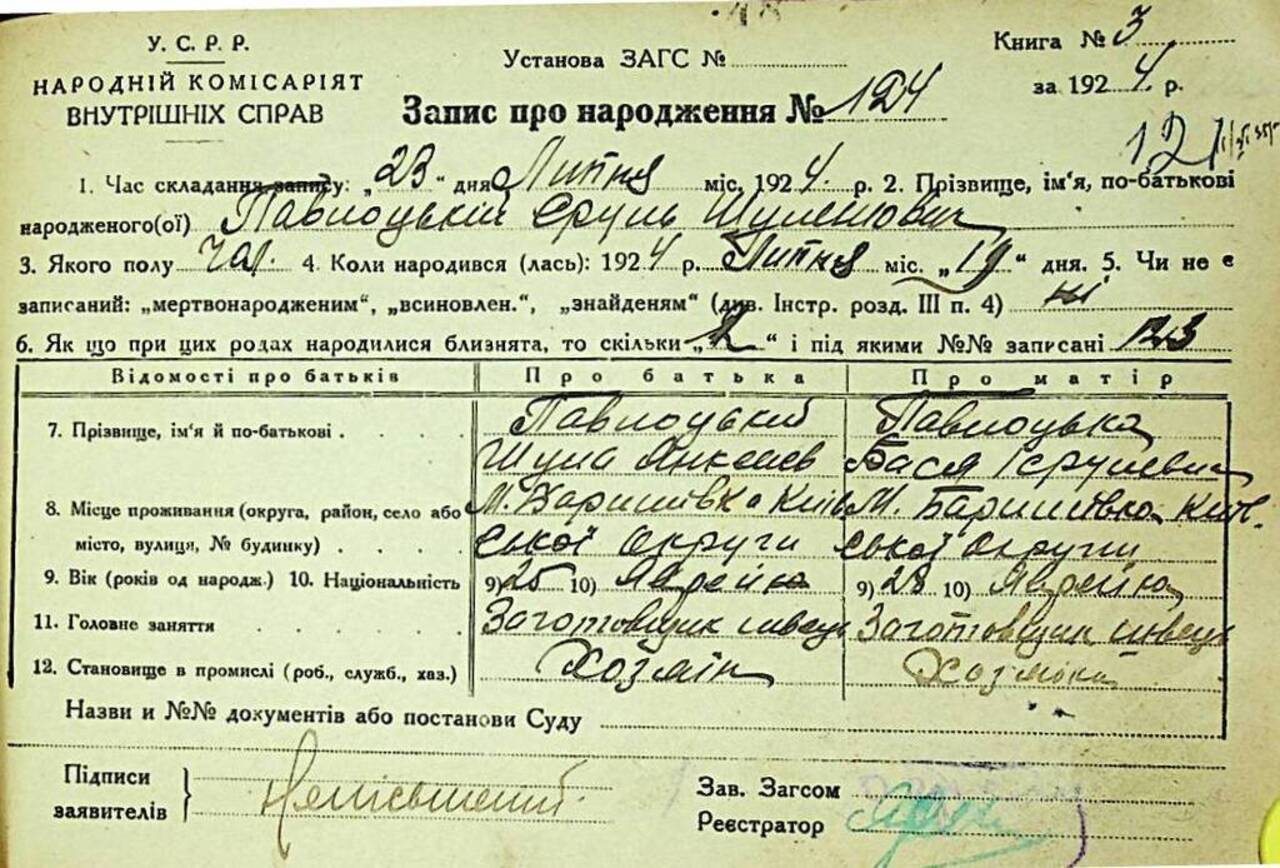 У. С. Р. Р.
НАРОДНІЙ КОМІСАРІЯТ
ВНУТРІШНІХ СПРАВ
Установа ЗАГС №
Книга № 3
за 1924 р.
Запис про народження № 124
12
1. Час складання запису: „23“ дня Липня міс. 1924. р. 2. Прізвище, ім'я, по-батькові
народженого(ої) Павлоцький Єруль Шулемович
3. Якого полу чол. 4. Коли народився (лась): 1924 р. Липня міс. „19“ дня. 5. Чи не є
записаний: „мертвонародженим“, „всиновлен.“, „знайденям“ (див. Інстр. розд. III п. 4) ні
6. Як що при цих родах народилися близнята, то скільки „2“ і під якими №№ записані 123
Відомості про батьків Про батька Про матір
7. Прізвище, ім'я й по-батькові . . . . Павлоцький Павлоцька
Шула Бася Ісрулевна
8. Місце проживання (округа, район, село або М. Баришівка Київ М. Баришівка Київ-
місто, вулиця, № будинку) . . . . ської Округи ської Округи
9. Вік (років од народж.) 10. Національність 9) 25 10) Яврей 9) 28 10) Яврейка
11. Головне заняття . . . . . Заготовщик швець Заготовщик швець
12. Становище в промислі (роб., служб., хаз.) Хозяїн Хозяйка
Назви и №№ документів або постанови Суду
Підписи
заявителів
Зав. Загсом
Реєстратор